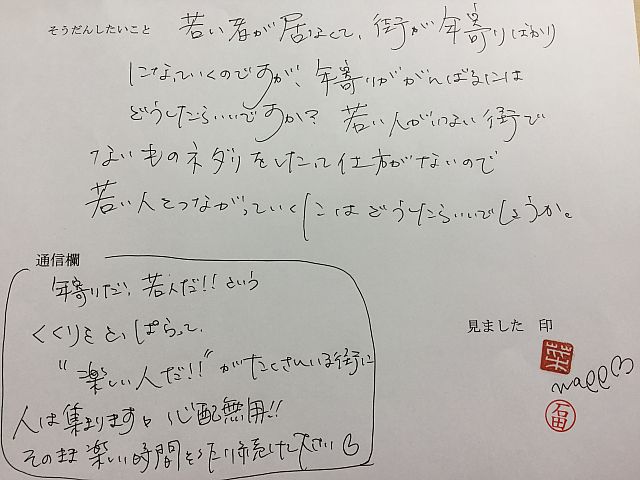 そうだんしたいこと 若い者が居なくて、街が年寄りばかり
になっていくのですが、年寄りががんばるには
どうしたらいいですか? 若い人がいない街で
ないものネダリをしたって仕方がないので
若い人とつながっていくにはどうしたらいいでしょうか。
通信欄
年寄りだ、若人だ!!という
くくりをとっぱらって、
"楽しい人だ!!"がたくさんいる街に
人は集まります。心配無用!!
そのまま楽しい時間を 続けて下さい
見ました 印
石田